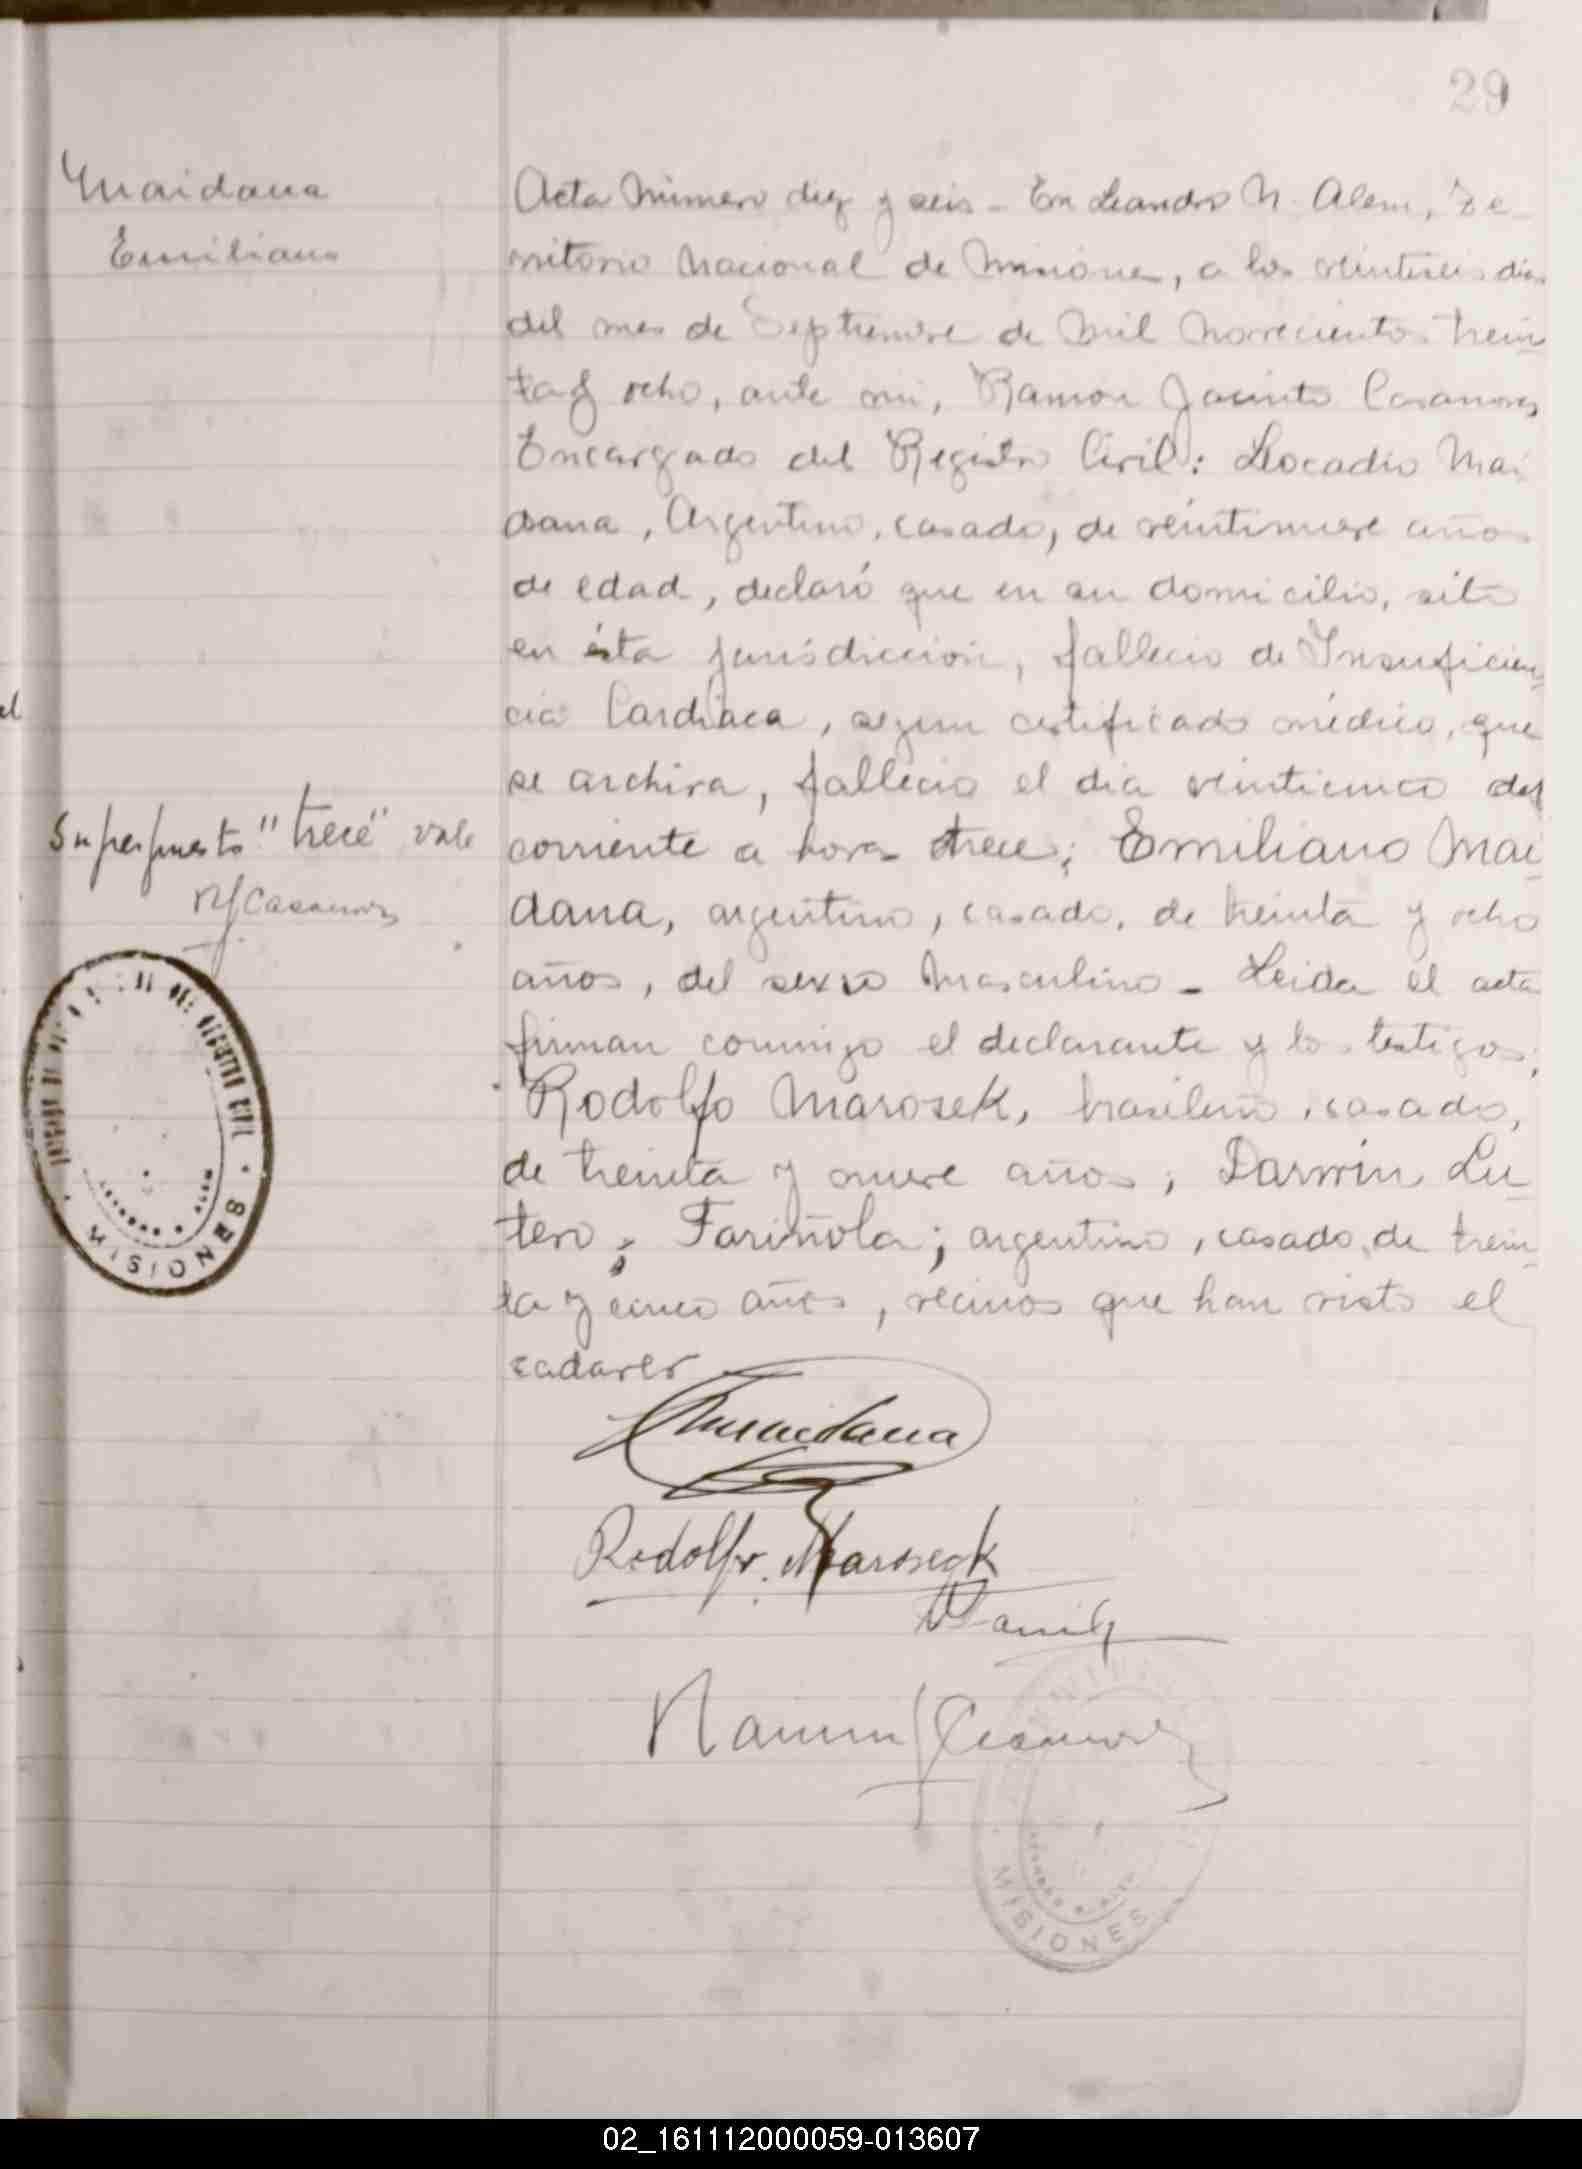 29
Maidana
Emiliano
Acta Número diez y seis - En Leandro N. Alem, Te-
rritorio Nacional de Misiones, a los veintiseis dias
del mes de Septiembre de Mil Novecientos trein
ta y ocho, ante mi, Ramon Jacinto Casanova
Encargado del Registro Civil: Leocadio Mai
dana, Argentino, casado, de veintinueve años
de edad, declaró que en su domicilio, sito
en ésta jurisdiccion, fallecio de Insuficien-
cia Cardiaca, segun certificado médico, que
se archiva, fallecio el dia veinticinco del
corriente a horas trece; Emiliano Mai-
dana, argentino, casado, de treinta y ocho
años, del sexso Masculino - Leida el acta
firman conmigo el declarante y los testigos;
Rodolfo Marosek, brasileño, casado,
de treinta y nueve años; Darwin Lu-
tero; Fariñola; argentino, casado, de trein-
ta y cinco años, vecinos que han visto el
cadaver
Superpuesto "trece" vale
RJCasanova
MISIONES
Maidana
Rodolfo Marosegk
Ramon J Casanova
MISIONES
02_161112000059-013607